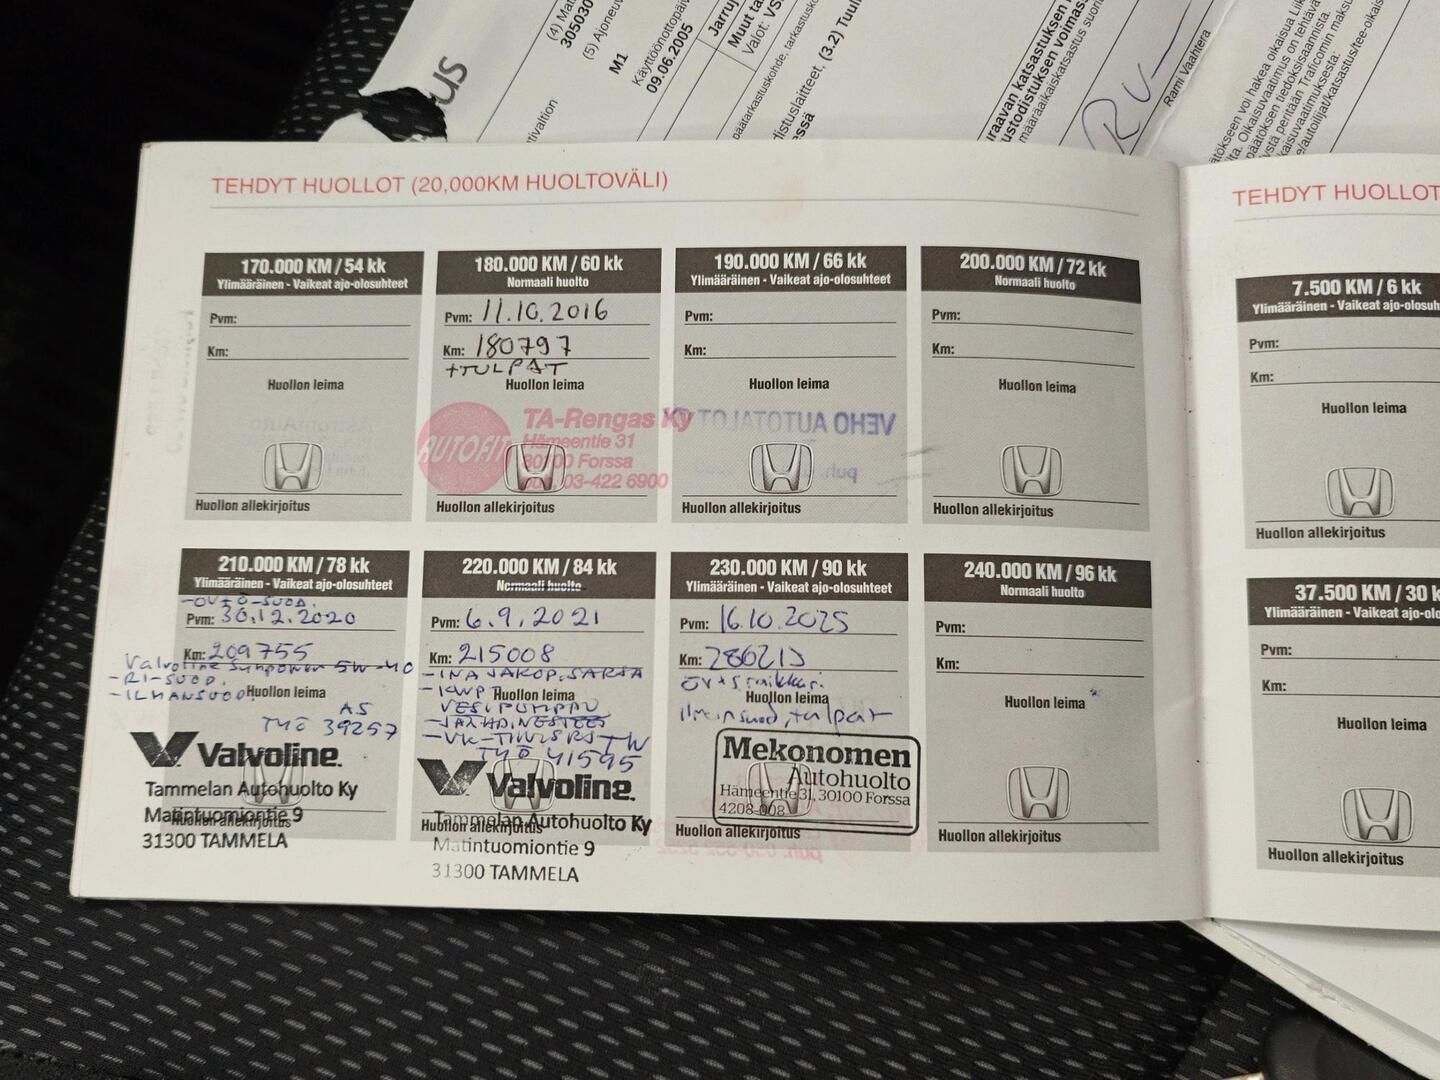 (4) Mat
305030
(5) Ajoneuv
M1
Käyttöönottopäiv
09.06.2005
Jarruj
Muut ta
Valot: VS
päätarkastuskohde, tarkastusko
distuslaitteet, (3.2) Tuuli
essä
uraavan katsastuksen
ustodistuksen voimas
määräaikaiskatsastus suori
Rami Vaahtera
TEHDYT HUOLLOT (20,000KM HUOLTOVÄLI)
170.000 KM / 54 kk
Ylimääräinen - Vaikeat ajo-olosuhteet
Pvm:
Km:
Huollon leima
Huollon allekirjoitus
180.000 KM / 60 kk
Normaali huolto
Pvm: 11.10.2016
Km: 180797
+TULPAT
Huollon leima
AUTOFIT
TA-Rengas Ky
Hämeentie 31
30100 Forssa
puh. 03-422 6900
Huollon allekirjoitus
190.000 KM / 66 kk
Ylimääräinen - Vaikeat ajo-olosuhteet
Pvm:
Km:
Huollon leima
VEHO AUTOTALOT
puh.
Huollon allekirjoitus
200.000 KM / 72 kk
Normaali huolto
Pvm:
Km:
Huollon leima
Huollon allekirjoitus
210.000 KM / 78 kk
Ylimääräinen - Vaikeat ajo-olosuhteet
-ÖV+Ö-SUOD.
Pvm: 30.12.2020
Km: 209755
Valvoline Synpower 5W-40
-RI-SUOD.
-ILMANSUOD.
Huollon leima
AS
TYÖ 39257
Valvoline.
Tammelan Autohuolto Ky
Matintuomiontie 9
Huollon allekirjoitus
31300 TAMMELA
220.000 KM / 84 kk
Normaali huolto
Pvm: 6.9.2021
Km: 215008
-INA JAKOP.SARJA
Huollon leima
VESIPUMPPU
-JÄÄHD.NESTEET
TYÖ 41595
Valvoline.
Tammelan Autohuolto Ky
Huollon allekirjoitus
Matintuomiontie 9
31300 TAMMELA
230.000 KM / 90 kk
Ylimääräinen - Vaikeat ajo-olosuhteet
Pvm: 16.10.2025
Km: 286213
Huollon leima
ilmansuod, tulpat
Mekonomen
Autohuolto
Hämeentie 31, 30100 Forssa
4208-008
Huollon allekirjoitus
240.000 KM / 96 kk
Normaali huolto
Pvm:
Km:
Huollon leima
Huollon allekirjoitus
TEHDYT HUOLLOT
7.500 KM / 6 kk
Ylimääräinen - Vaikeat ajo-olosuh
Pvm:
Km:
Huollon leima
Huollon allekirjoitus
37.500 KM / 30 k
Ylimääräinen - Vaikeat ajo-olo
Pvm:
Km:
Huollon leima
Huollon allekirjoitus